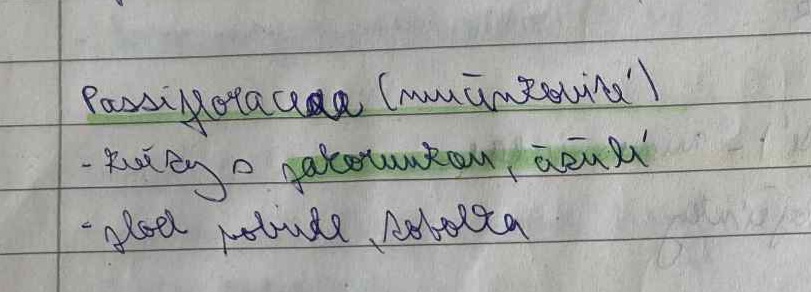 Passifloraceae (mučenkovité)
- květy s pakorunkou, číšulí
- plod bobule, tobolka